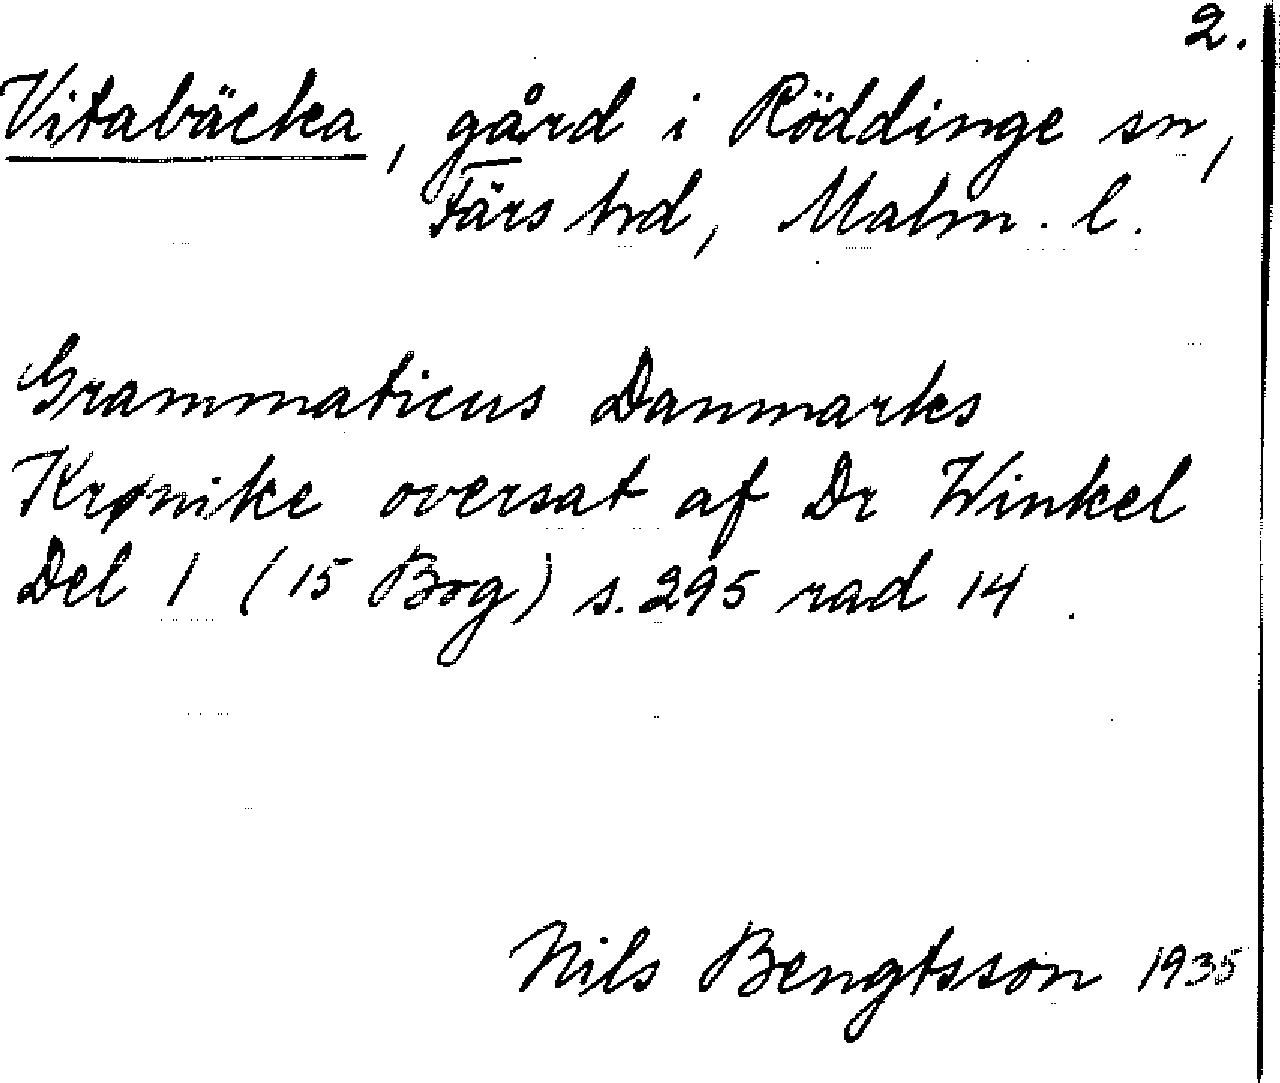 2.
Vitabäcka, gård i Röddinge sn,
Färs hrd, Malm. l.
Grammaticus Danmarks
Krønike oversat af Dr Winkel
Del 1 (15 Bog) s. 295 rad 14.
Nils Bengtsson 1935